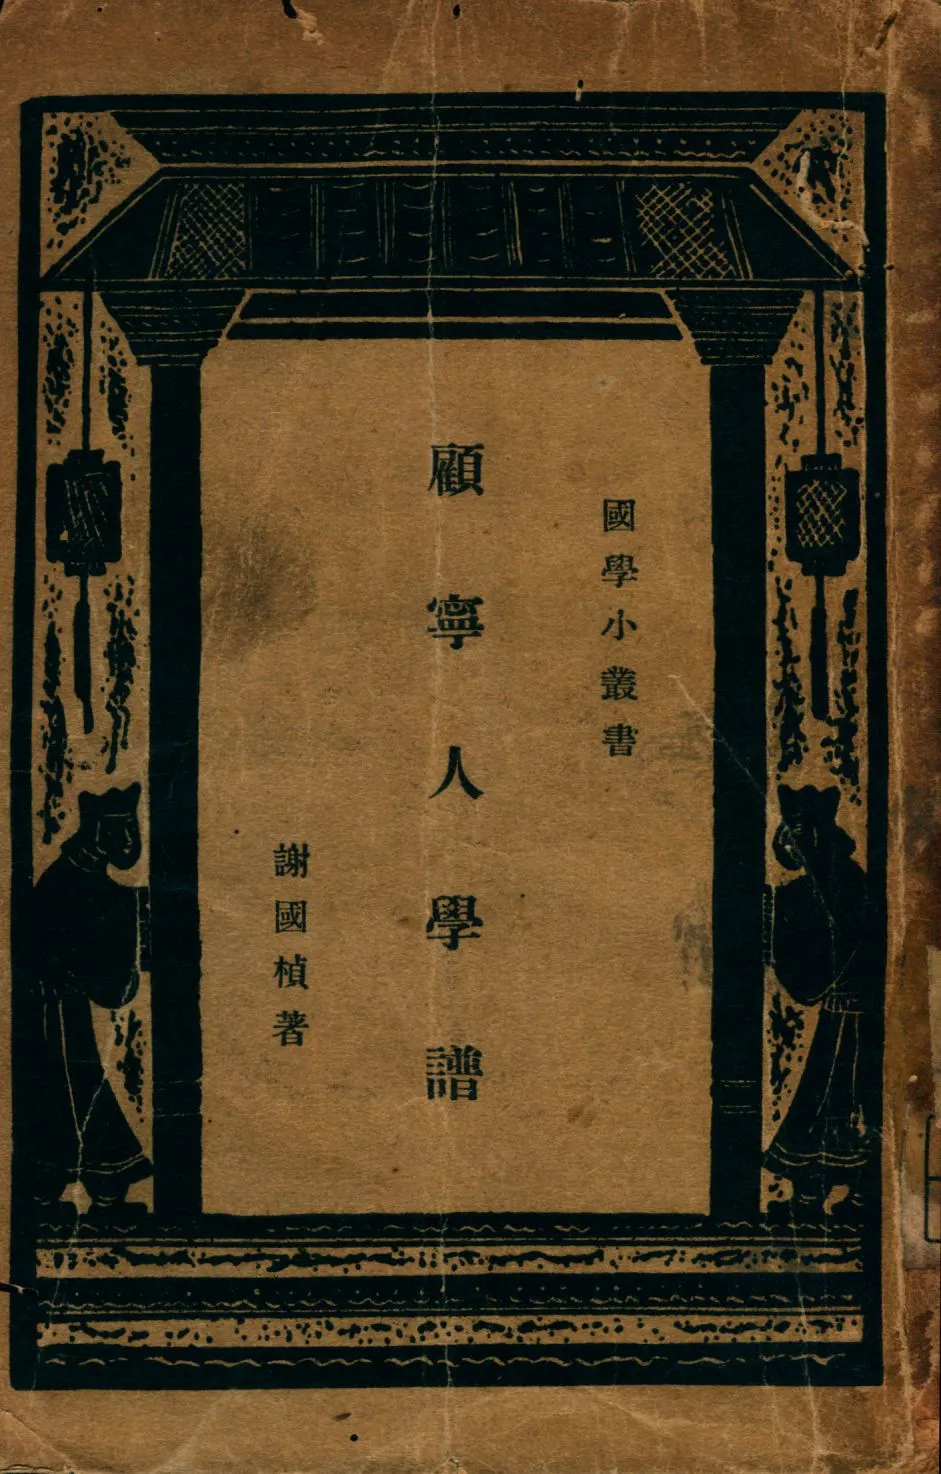 國學小叢書
顧寧人學譜
謝國楨著